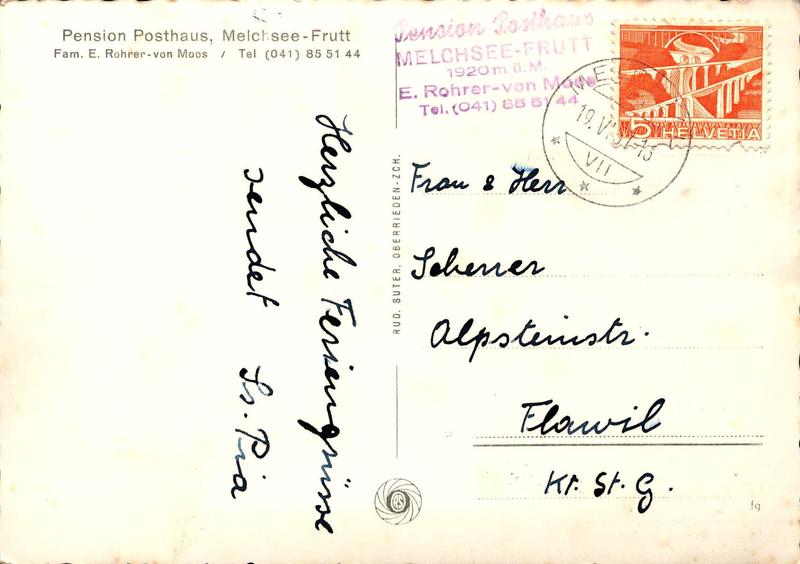 Pension Posthaus, Melchsee-Frutt
Fam. E. Rohrer-von Moos / Tel (041) 85 51 44
Pension Posthaus
MELCHSEE-FRUTT
1920 m ü.M.
E. Rohrer-von Moos
Tel. (041) 85 51 44
5 HELVETIA
19.VI
VII
Herzliche Feriengrüsse
sendet Sr. Pia
RUD. SUTER, OBERRIEDEN-ZCH.
Frau & Herr
Scherrer
Alpsteinstr.
Flawil
Kt. St. G.
RS
fg